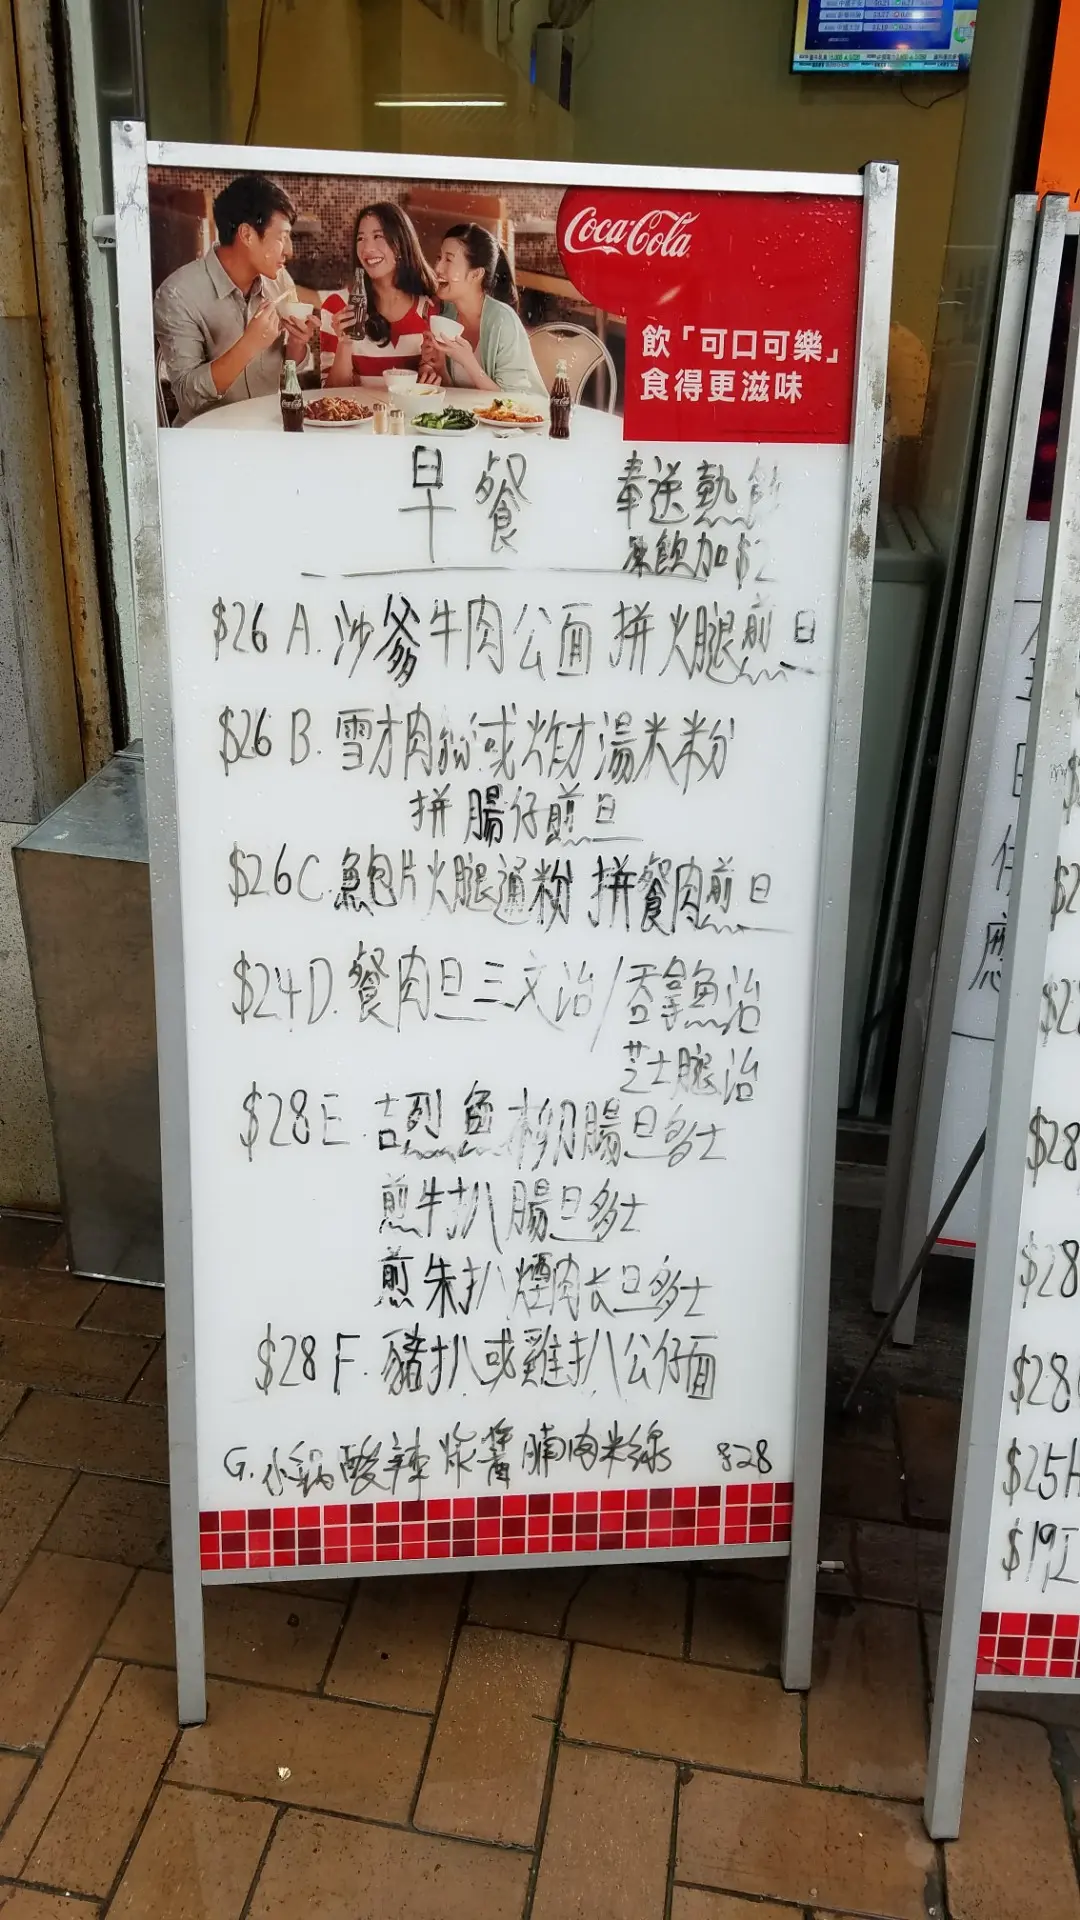 Coca-Cola
飲「可口可樂」
食得更滋味
早餐
奉送熱飲
凍飲加$2
$26 A. 沙爹牛肉公面 拼火腿煎旦
$26 B. 雪才肉絲或炸才湯米粉
拼腸仔煎旦
$26 C. 鮑片火腿通粉 拼餐肉煎旦
$24 D. 餐肉旦三文治/吞拿魚治
芝士腿治
$28 E. 吉列魚柳腸旦多士
煎牛扒腸旦多士
煎朱扒煙肉长旦多士
$28 F. 豬扒或雞扒公仔面
G. 小鍋酸辣炸醬腩肉米線 $28
$28
$28
$28
$25H
$19I